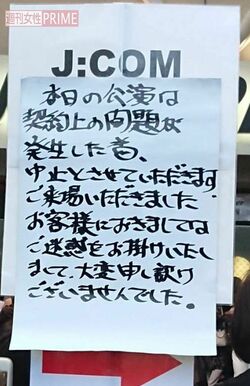 週刊女性PRIME
J:COM
本日の公演は
契約上の問題が
発生した為、
中止とさせていただきます
ご来場いただきました
お客様におきましては
ご迷惑をお掛けいたし
まして、大変申し訳け
ございませんでした。